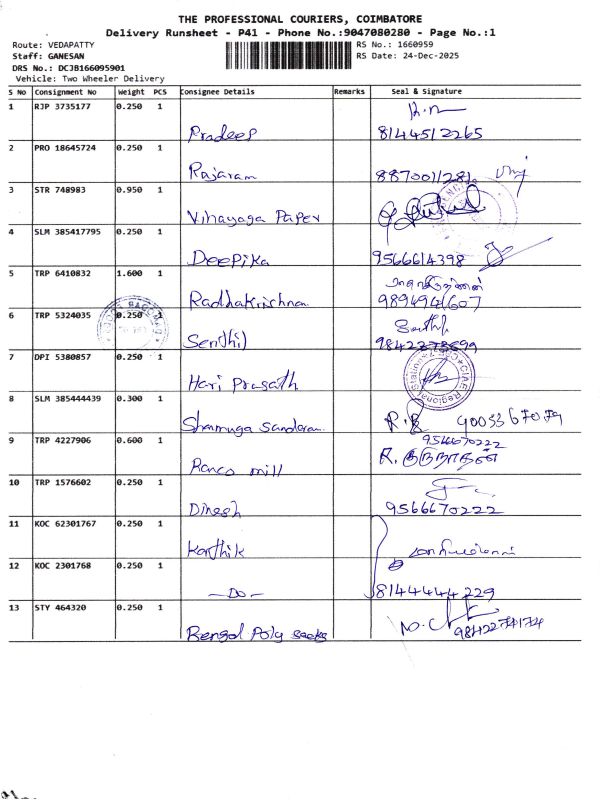 THE PROFESSIONAL COURIERS, COIMBATORE
Delivery Runsheet - P41 - Phone No.:9047080280 - Page No.:1
Route: VEDAPATTY
RS No.: 1660959
Staff: GANESAN
RS Date: 24-Dec-2025
DRS No.: DCJB166095901
Vehicle: Two Wheeler Delivery
S No Consignment No Weight PCS Consignee Details Remarks Seal & Signature
1 RJP 3735177 0.250 1
Pradeep 8144512265
2 PRO 18645724 0.250 1
Rajaram 8870011281
3 STR 748983 0.950 1
Vinayaga Paper
4 SLM 385417795 0.250 1
Deepika 9566614398
5 TRP 6410832 1.600 1
Radhakrishnan 9894941607
6 TRP 5324035 0.250 1
Senthil
7 DPI 5380857 0.250 1
Hari Prasath
CIAE Regional Station
8 SLM 385444439 0.300 1
Shanmuga Sundaram
9 TRP 4227906 0.600 1
9566670222
Ranco mill R. குருநாதன்
10 TRP 1576602 0.250 1
Dinesh 9566670222
11 KOC 62301767 0.250 1
Karthik
12 KOC 2301768 0.250 1
—Do— 8144444229
13 STY 464320 0.250 1
Bengal Poly sacks 9842274174